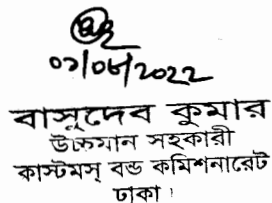 ০১/০৮/2022
বাসুদেব কুমার
উচ্চমান সহকারী
কাস্টমস্ বন্ড কমিশনারেট
ঢাকা।